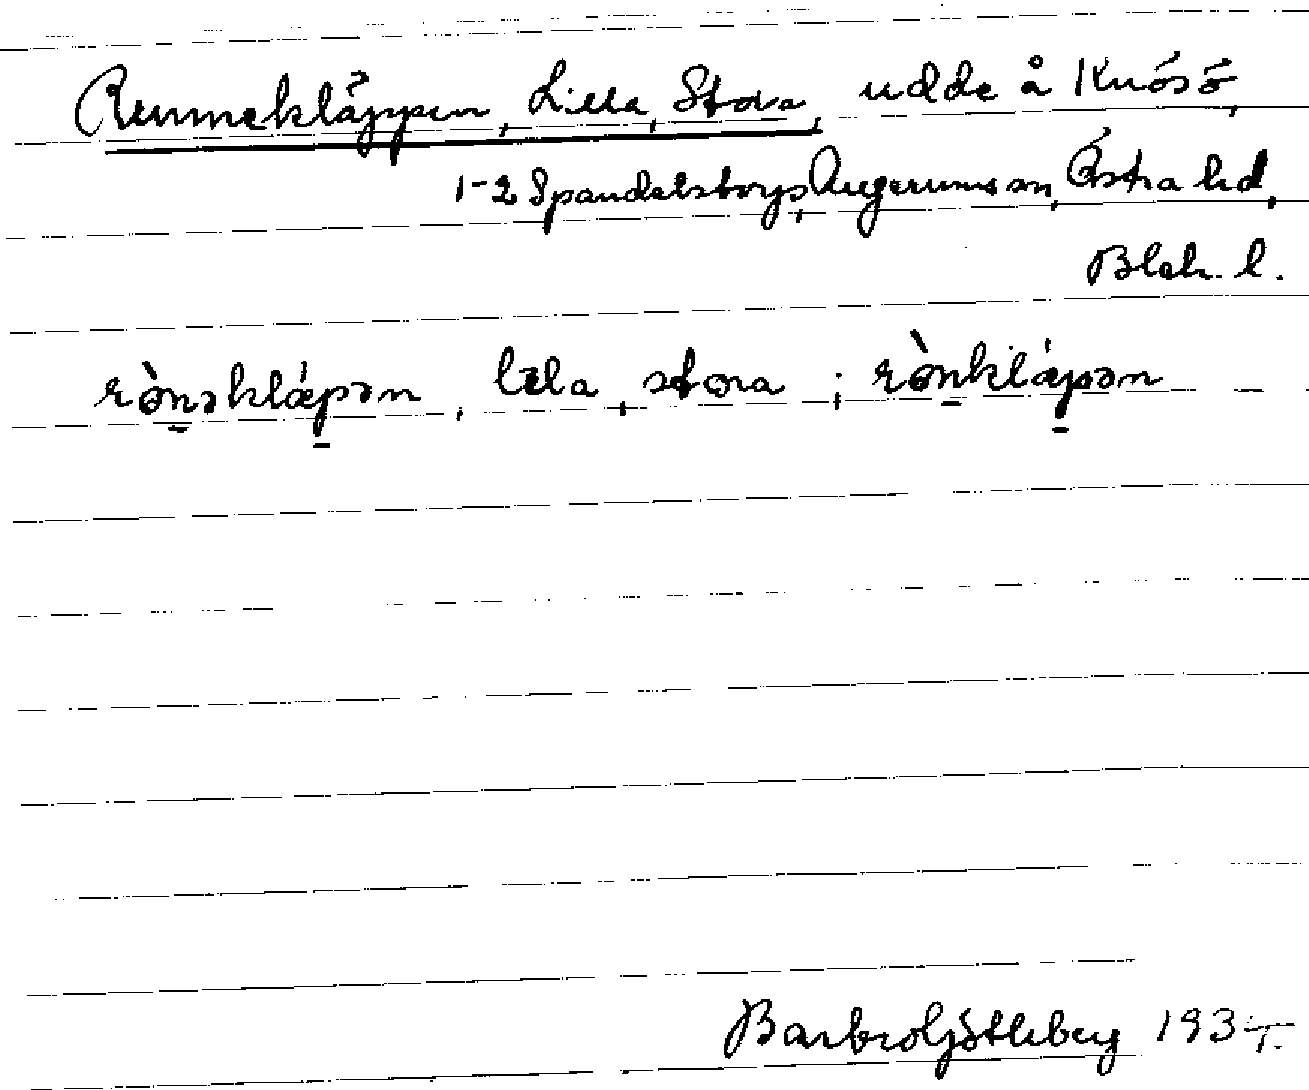 Runnekläppen, Lilla, Stora, udde å Knösö,
1-2 Spandelstorp, Augerums sn, Östra hd,
Blek. l.
rò̱nəklǽpən, lɩla, stora ; rò̱nklǽpən
Barbro Götleberg